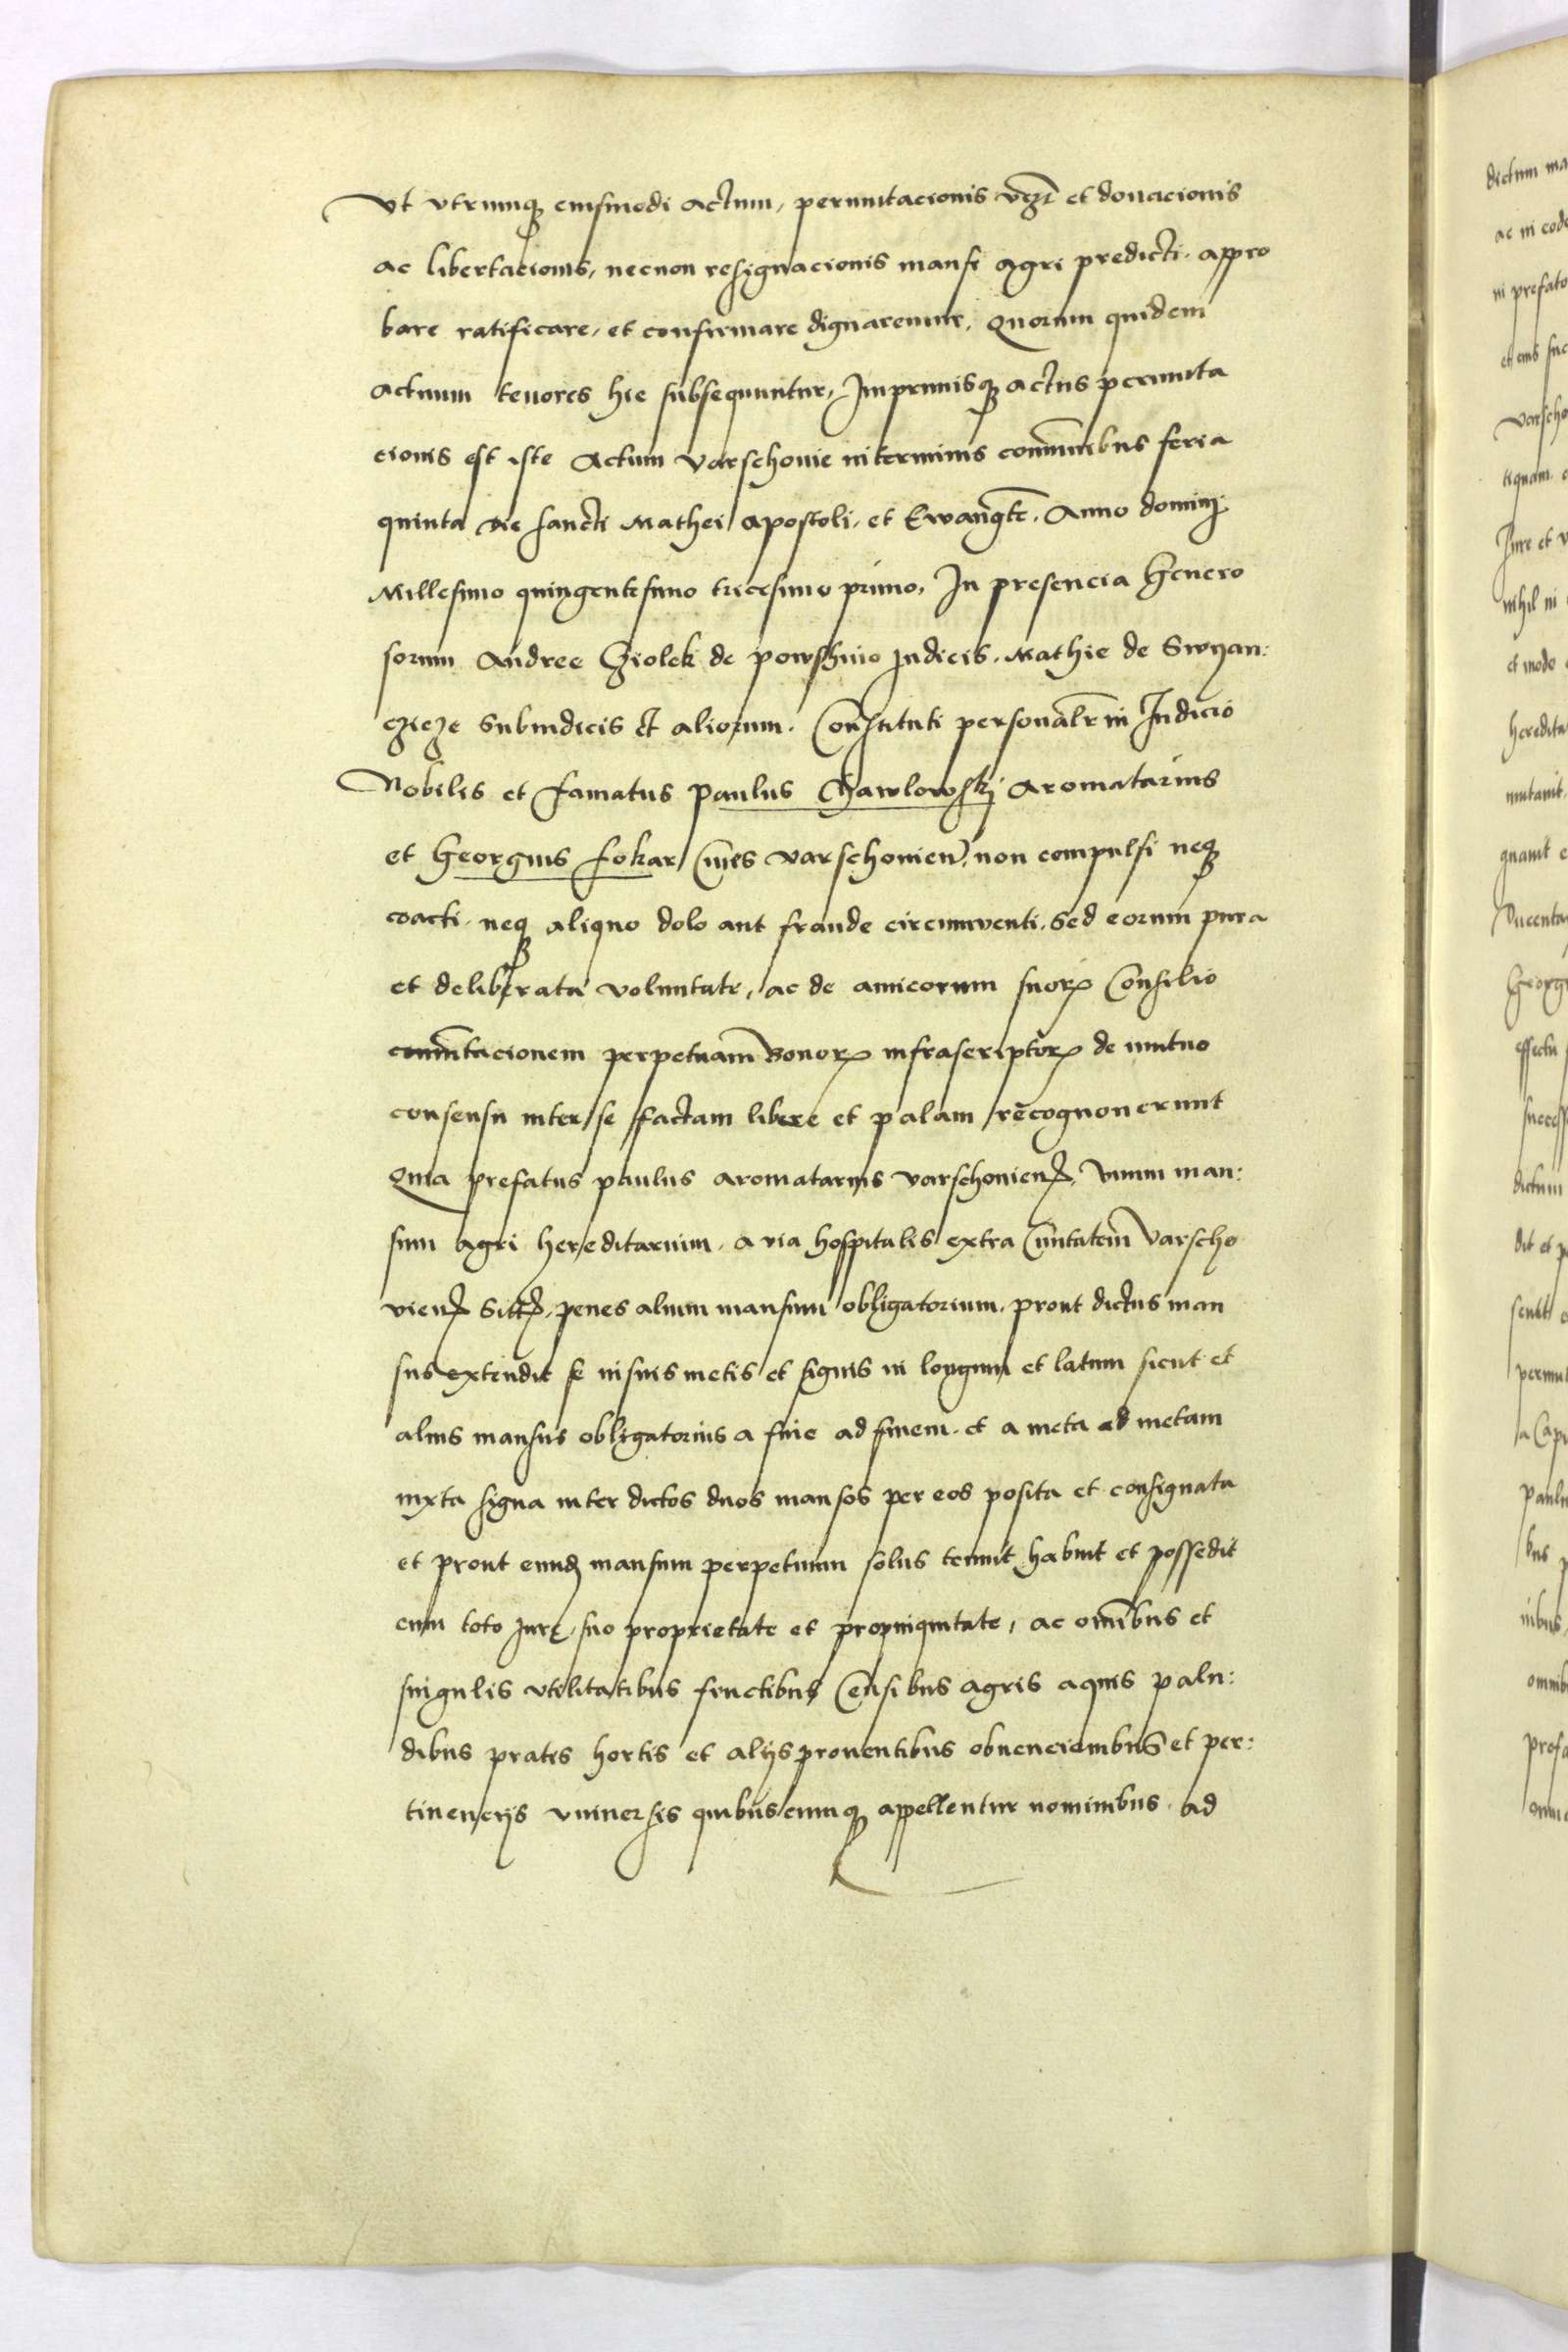 Vt vtrumq; eiusmodi actum, permutacionis vcz et donacionis
ac libertacionis, necnon resignacionis mansi agri predicti. appro
bare ratificare, et confirmare dignaremur. Quorum quidem
actuum tenores hic subsequuntur, Imprimisq; actus permuta
cionis est iste Actum Varschouie in terminis communibus feria
quinta die sancti Mathei apostoli, et Ewangte. Anno dominj
Millesimo quingentesimo tricesimo primo, In presencia Genero
sorum Andree Cziolek de powszino Judicis, Mathie de Swyan:
czicze Subiudicis et aliorum. Constituti personalr in Judicio
Nobilis et famatus paulus Chawlowskj Aromatarius
et Georgius fokar Ciues Varschouien, non compulsi neq;
coacti. neq; aliquo dolo aut fraude circumuenti. Sed eorum pura
et deliberata voluntate, ac de amicorum suor Consilio
commutacionem perpetuam Bonor infrascriptor de mutuo
consensu inter se factam libere et palam recognouerunt
Quia prefatus paulus aromatarius varschouien, vnum man:
sum agri hereditarium, a via hospitalis extra Ciuitatem Varscho
uien Sitt, penes alium mansum obligatorium, prout dictus man
sus extendit se in suis metis et signis in longum et latum sicut et
alius mansus obligatorius a fine ad finem. et a meta ad metam
iuxta signa inter dictos duos mansos per eos posita et consignata
et prout eund mansum perpetuum solus tenuit habuit et possedit
cum toto Jure suo proprietate et propinquitate, ac omibus et
singulis vtilitatibus fructibus Censibus agris aquis palu:
dibus pratis hortis et alijs prouentibus obuencionibus et per:
tinencijs vniuersis quibuscumq; appellentur nominibus. ad